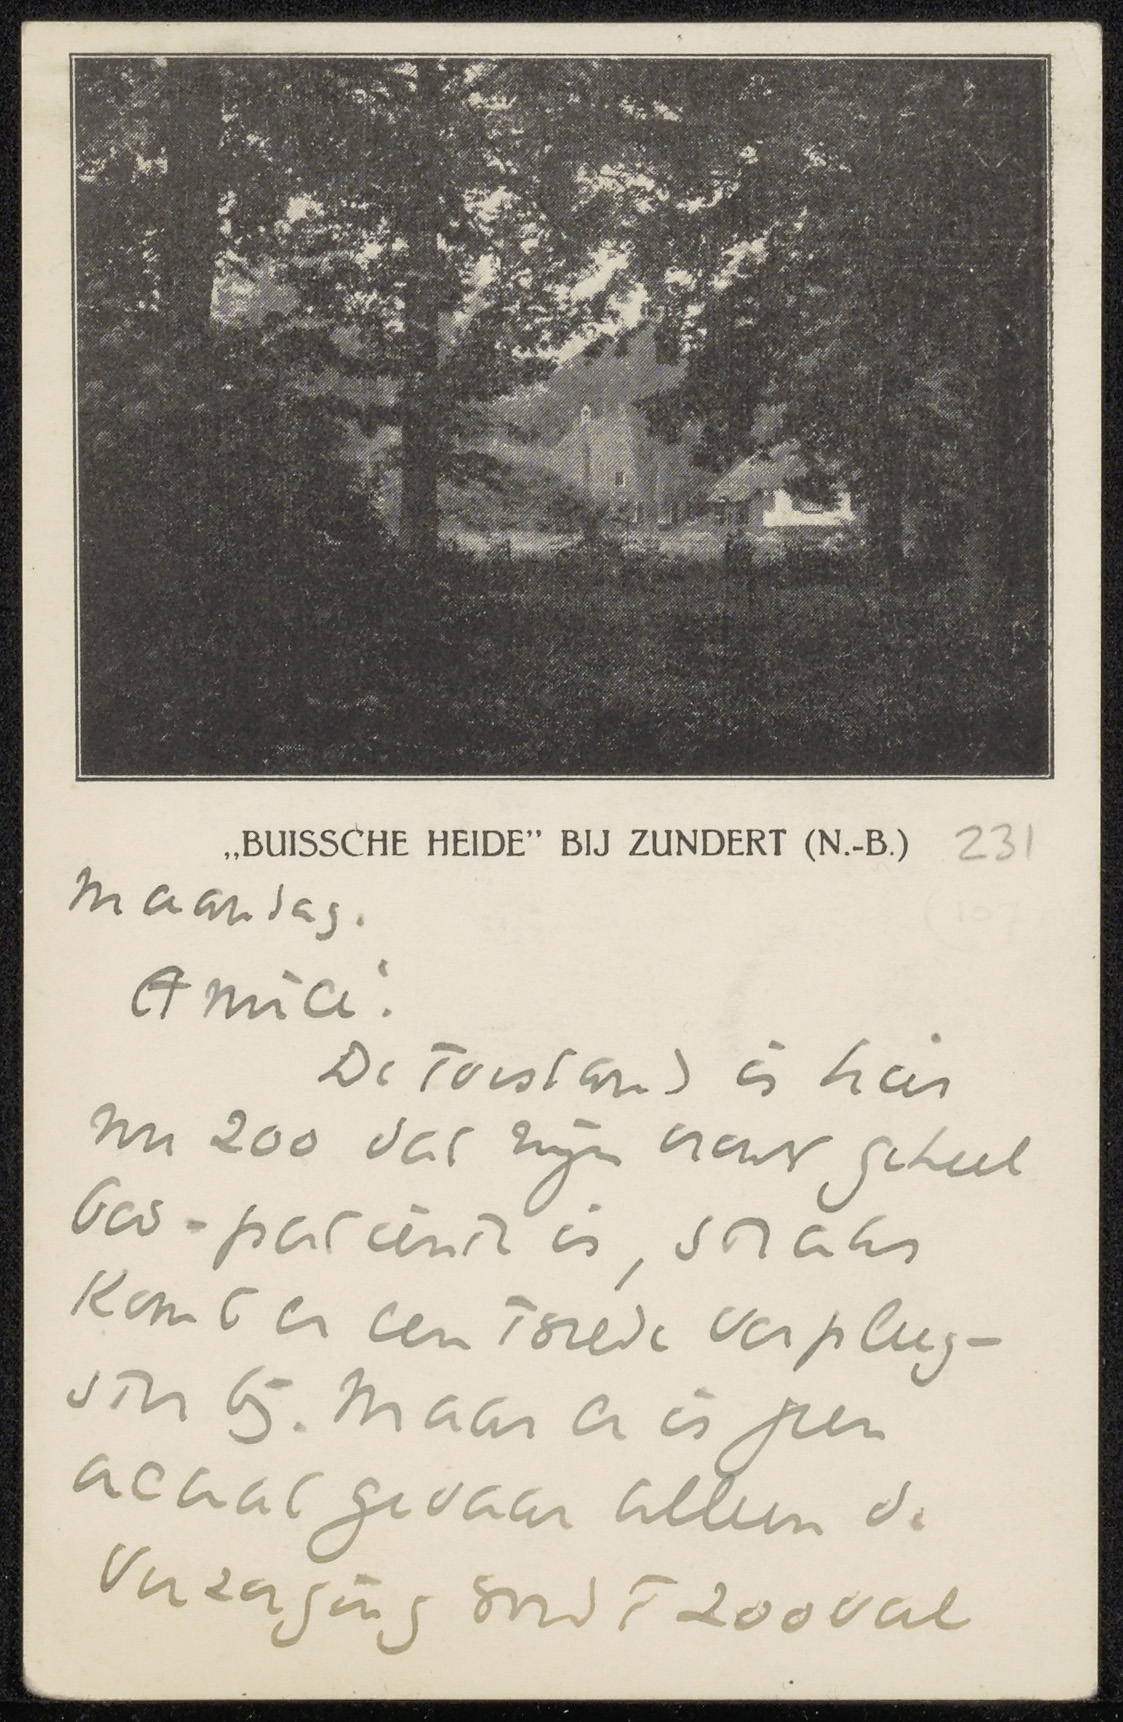 „BUISSCHE HEIDE” BIJ ZUNDERT (N.-B.)
231
(107
Maandag.
Amice!
De toestand is hier
nu zoo dat mijn vrouw geheel
bed-patiënte is, straks
komt er een tweede verpleeg-
ster bij. Maar er is geen
acuut gevaar alleen de
verzorging wordt zooveel